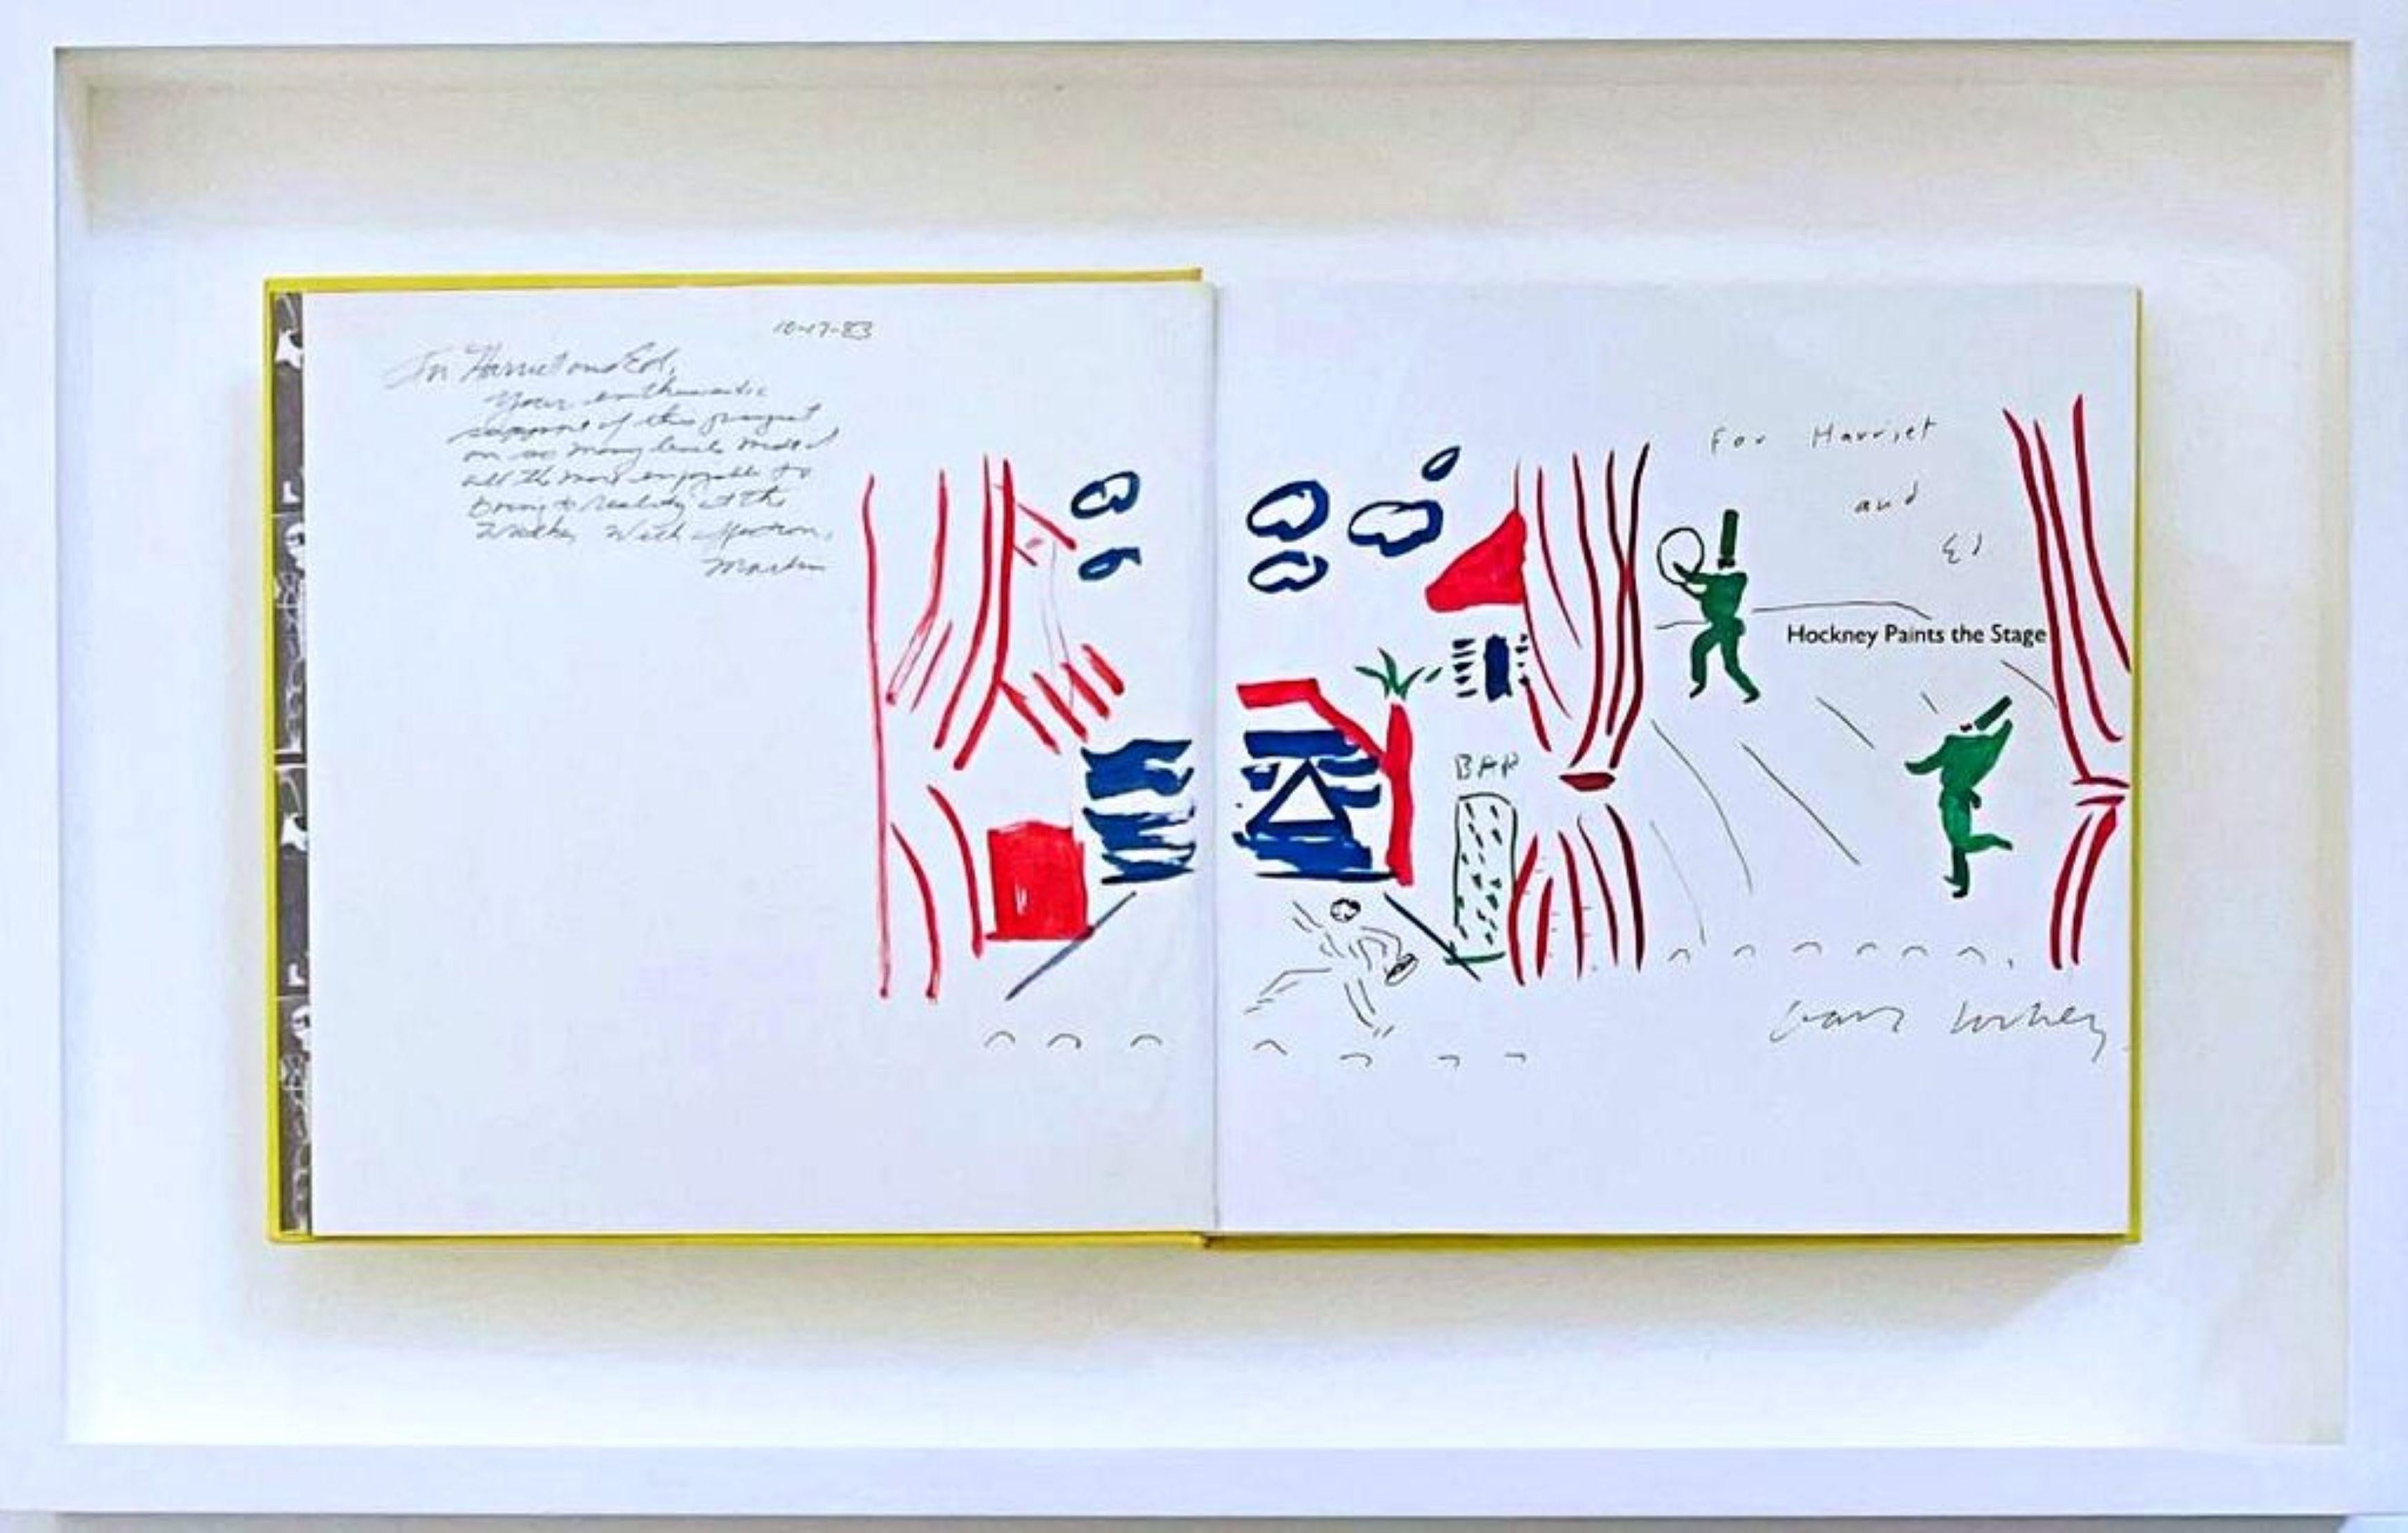 10-17-83
To Harriet and Ed,
Your enthusiastic
support of this project
on so many levels made it
all the more enjoyable to
bring to reality at the
Walker. With affection,
Martin
For Harriet
and
Ed
Hockney Paints the Stage
BAR
David Hockney